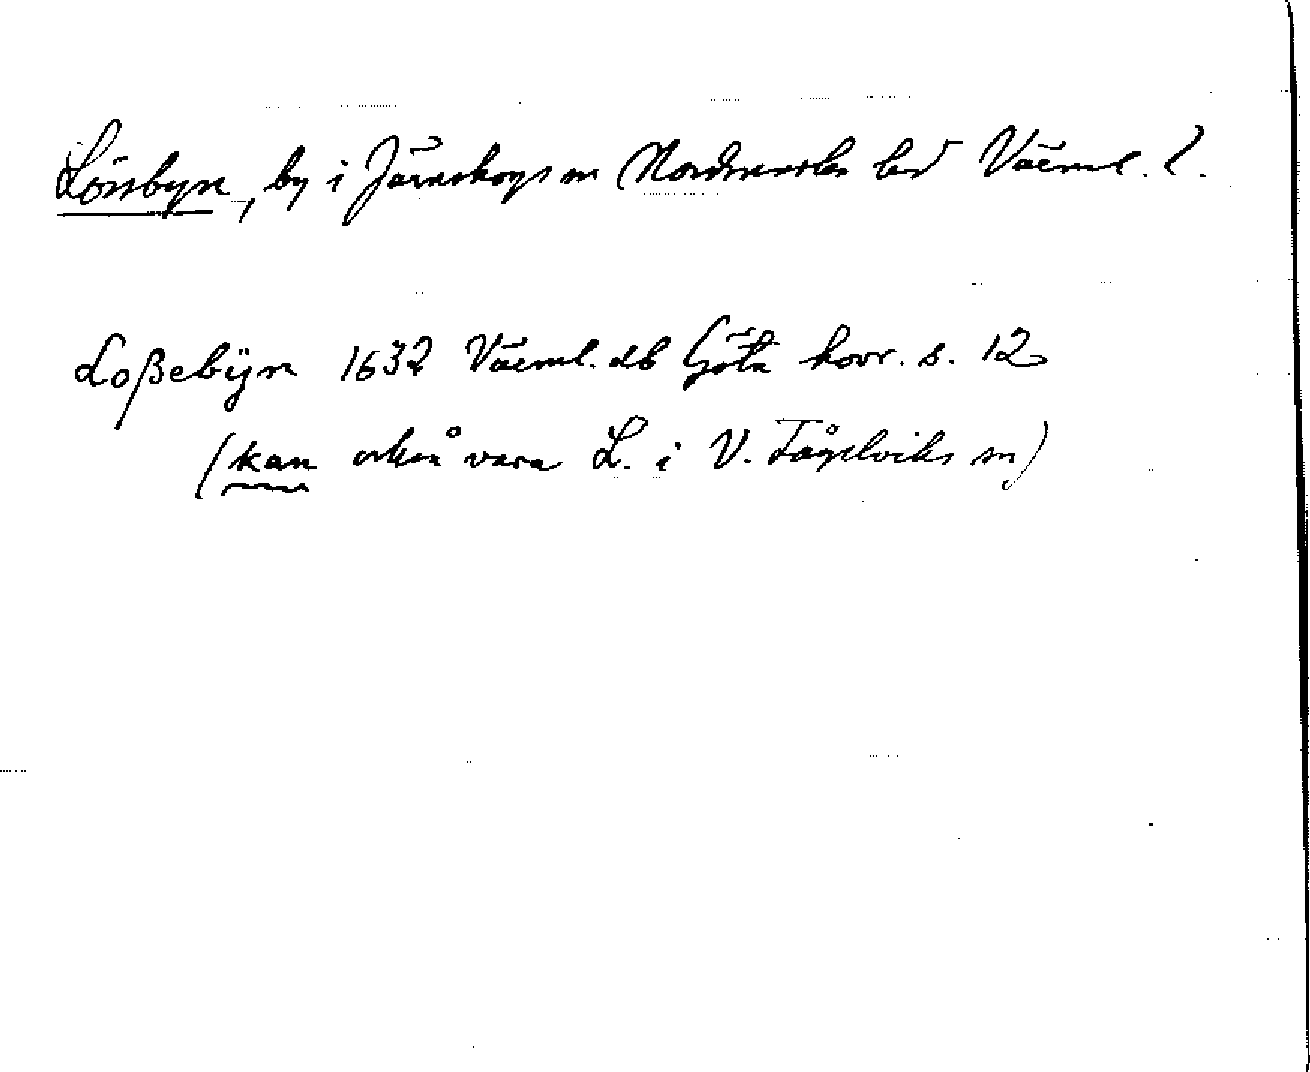 Lönsbyn, by i Järnskogs sn Nordmarks hd Värml. l.
Loßebÿn 1632 Värml. db Göta hovr. s. 12
(kan också vara L. i V. Fågelviks sn)